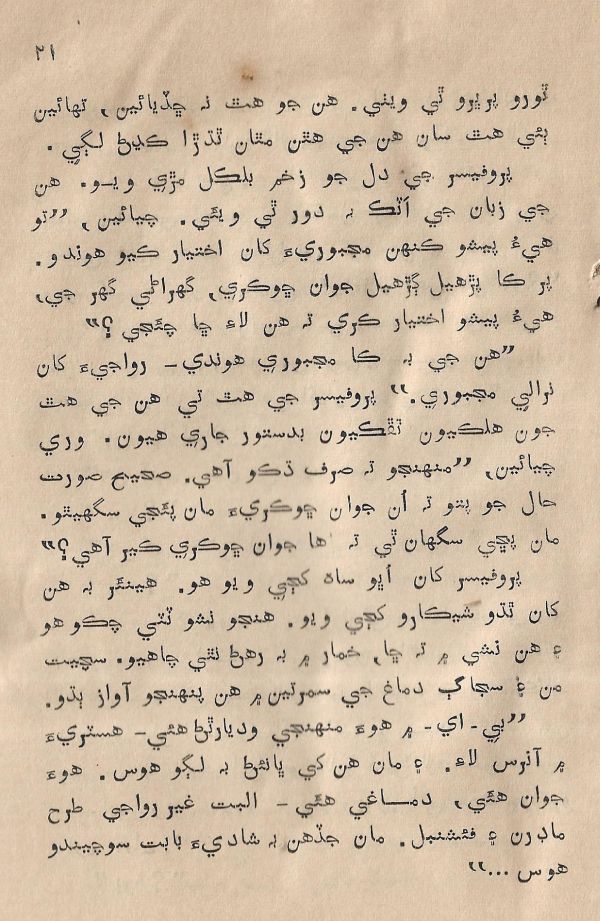 ٢١
ٿورو پرڀرو ٿي ويئي. هن جو هٿ نہ ڇڏيائين, تھائين
ٻئي هٿ سان هن جي هٿن مٿان ٿڌڙا کڻڻ لڳي.
پروفيسر جي دل جو زخم بلڪل مڙي ويـو. هن
جي زبان جي اَٽڪ بہ دور ٿي ويئي. چيائين, ”تو
هيءُ پيشو ڪنهن مجبوريءَ کان اختيار ڪيو هوندو.
پر ڪا پڙهيل ڳڙهيل جوان ڇوڪري, گهراڻي گهر جي,
هيءُ پيشو اختيار ڪري تہ هن لاءِ ڇا چئجي؟“
”هن جي بہ ڪا مجبوري هوندي - رواجيءَ کان
نرالي مجبوري.“ پروفيسر جي هٿ تي هن جي هٿ
جون هلڪيون ٿڦڪيون بدستور جاري هيون. وري
چيائين, ”منهنجو تہ صرف ڌڪو آهي. صحيح صورت
حال جو پتو تہ اُن جوان ڇوڪريءَ مان پئجي سگهيٿو.
مان پڇي سگهان ٿي تہ ها جوان ڇوڪري ڪير آهي؟“
پروفيسر کان اُڀو ساهہ کڄي ويو هو. هينئر بہ هن
کان ٿڌو شيڪارو کڄي ويو. هنجو نشو ٽٽي چڪو هو
۽ هن نشي ۾ تہ ڇا, خمار ۾ بہ رهڻ نٿي چاهيو. سچيت
من ۽ سجاڳ دماغ جي سمرتين ۾ هن پنهنجو آواز ٻڌو.
”بي - اي - ۾ هوءَ منهنجي وديارٿڻ هئي - هسٽريءَ
۾ آنرس لاءِ. ۽ مان هن کي ڀانئڻ بہ لڳو هوس. هوءَ
جوان هئي, دمـاغي هئي - البت غير رواجي طرح
ماڊرن ۽ فئشنبل. مان جڏهن بہ شاديءَ بابت سوچيندو
هوس ...“